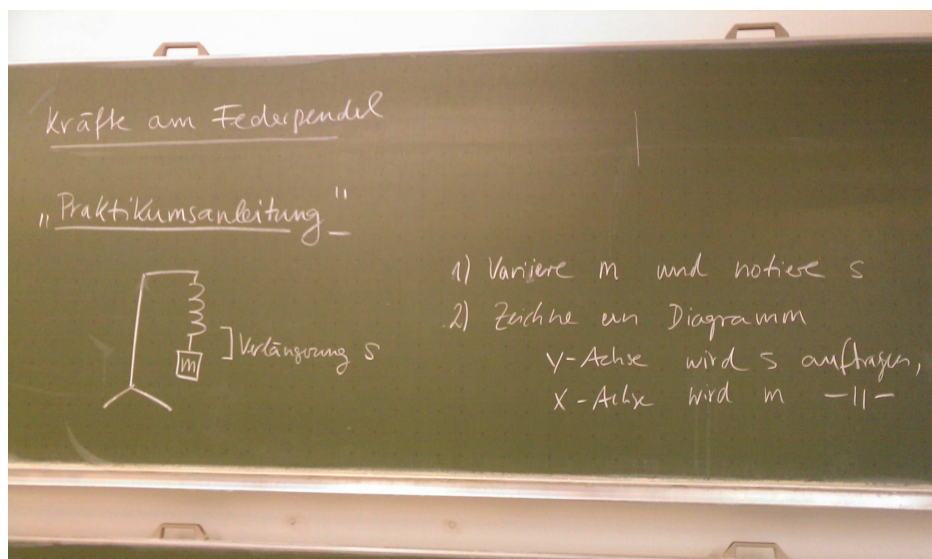 Kräfte am Federpendel
"Praktikumsanleitung"
m
Verlängerung s
1) Variiere m und notiere s
2) Zeichne ein Diagramm
y-Achse wird s auftragen,
x-Achse wird m -||-